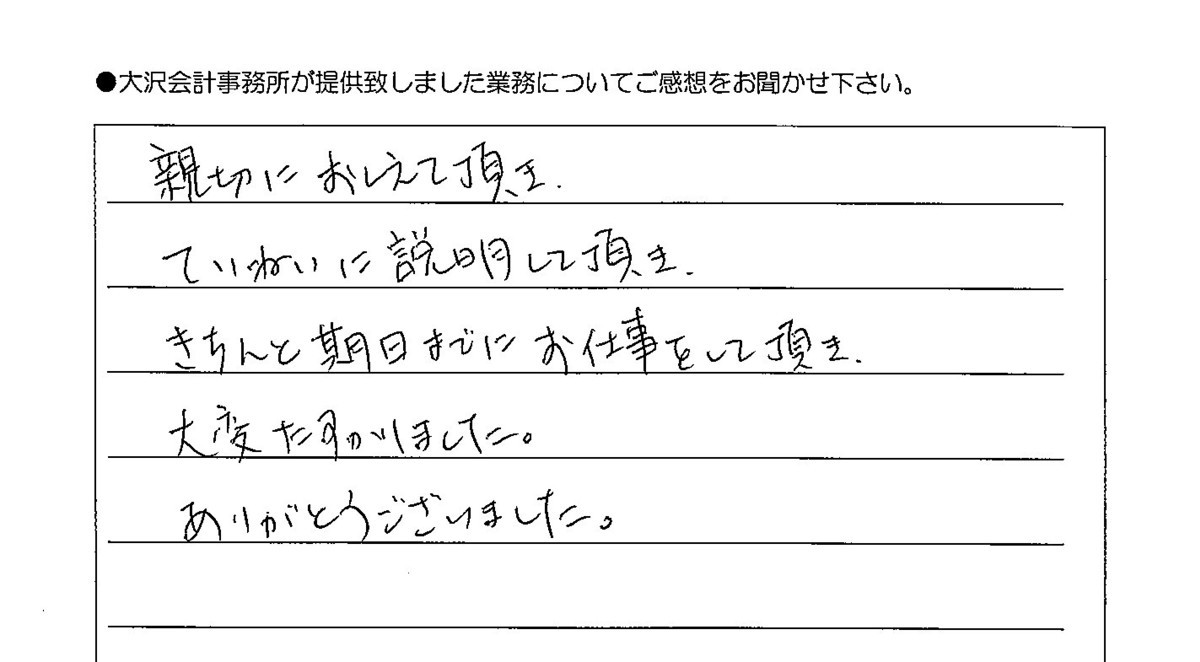 ●大沢会計事務所が提供致しました業務についてご感想をお聞かせ下さい。
親切におしえて頂き.
ていねいに説明して頂き.
きちんと期日までにお仕事をして頂き.
大変たすかりました。
ありがとうございました。